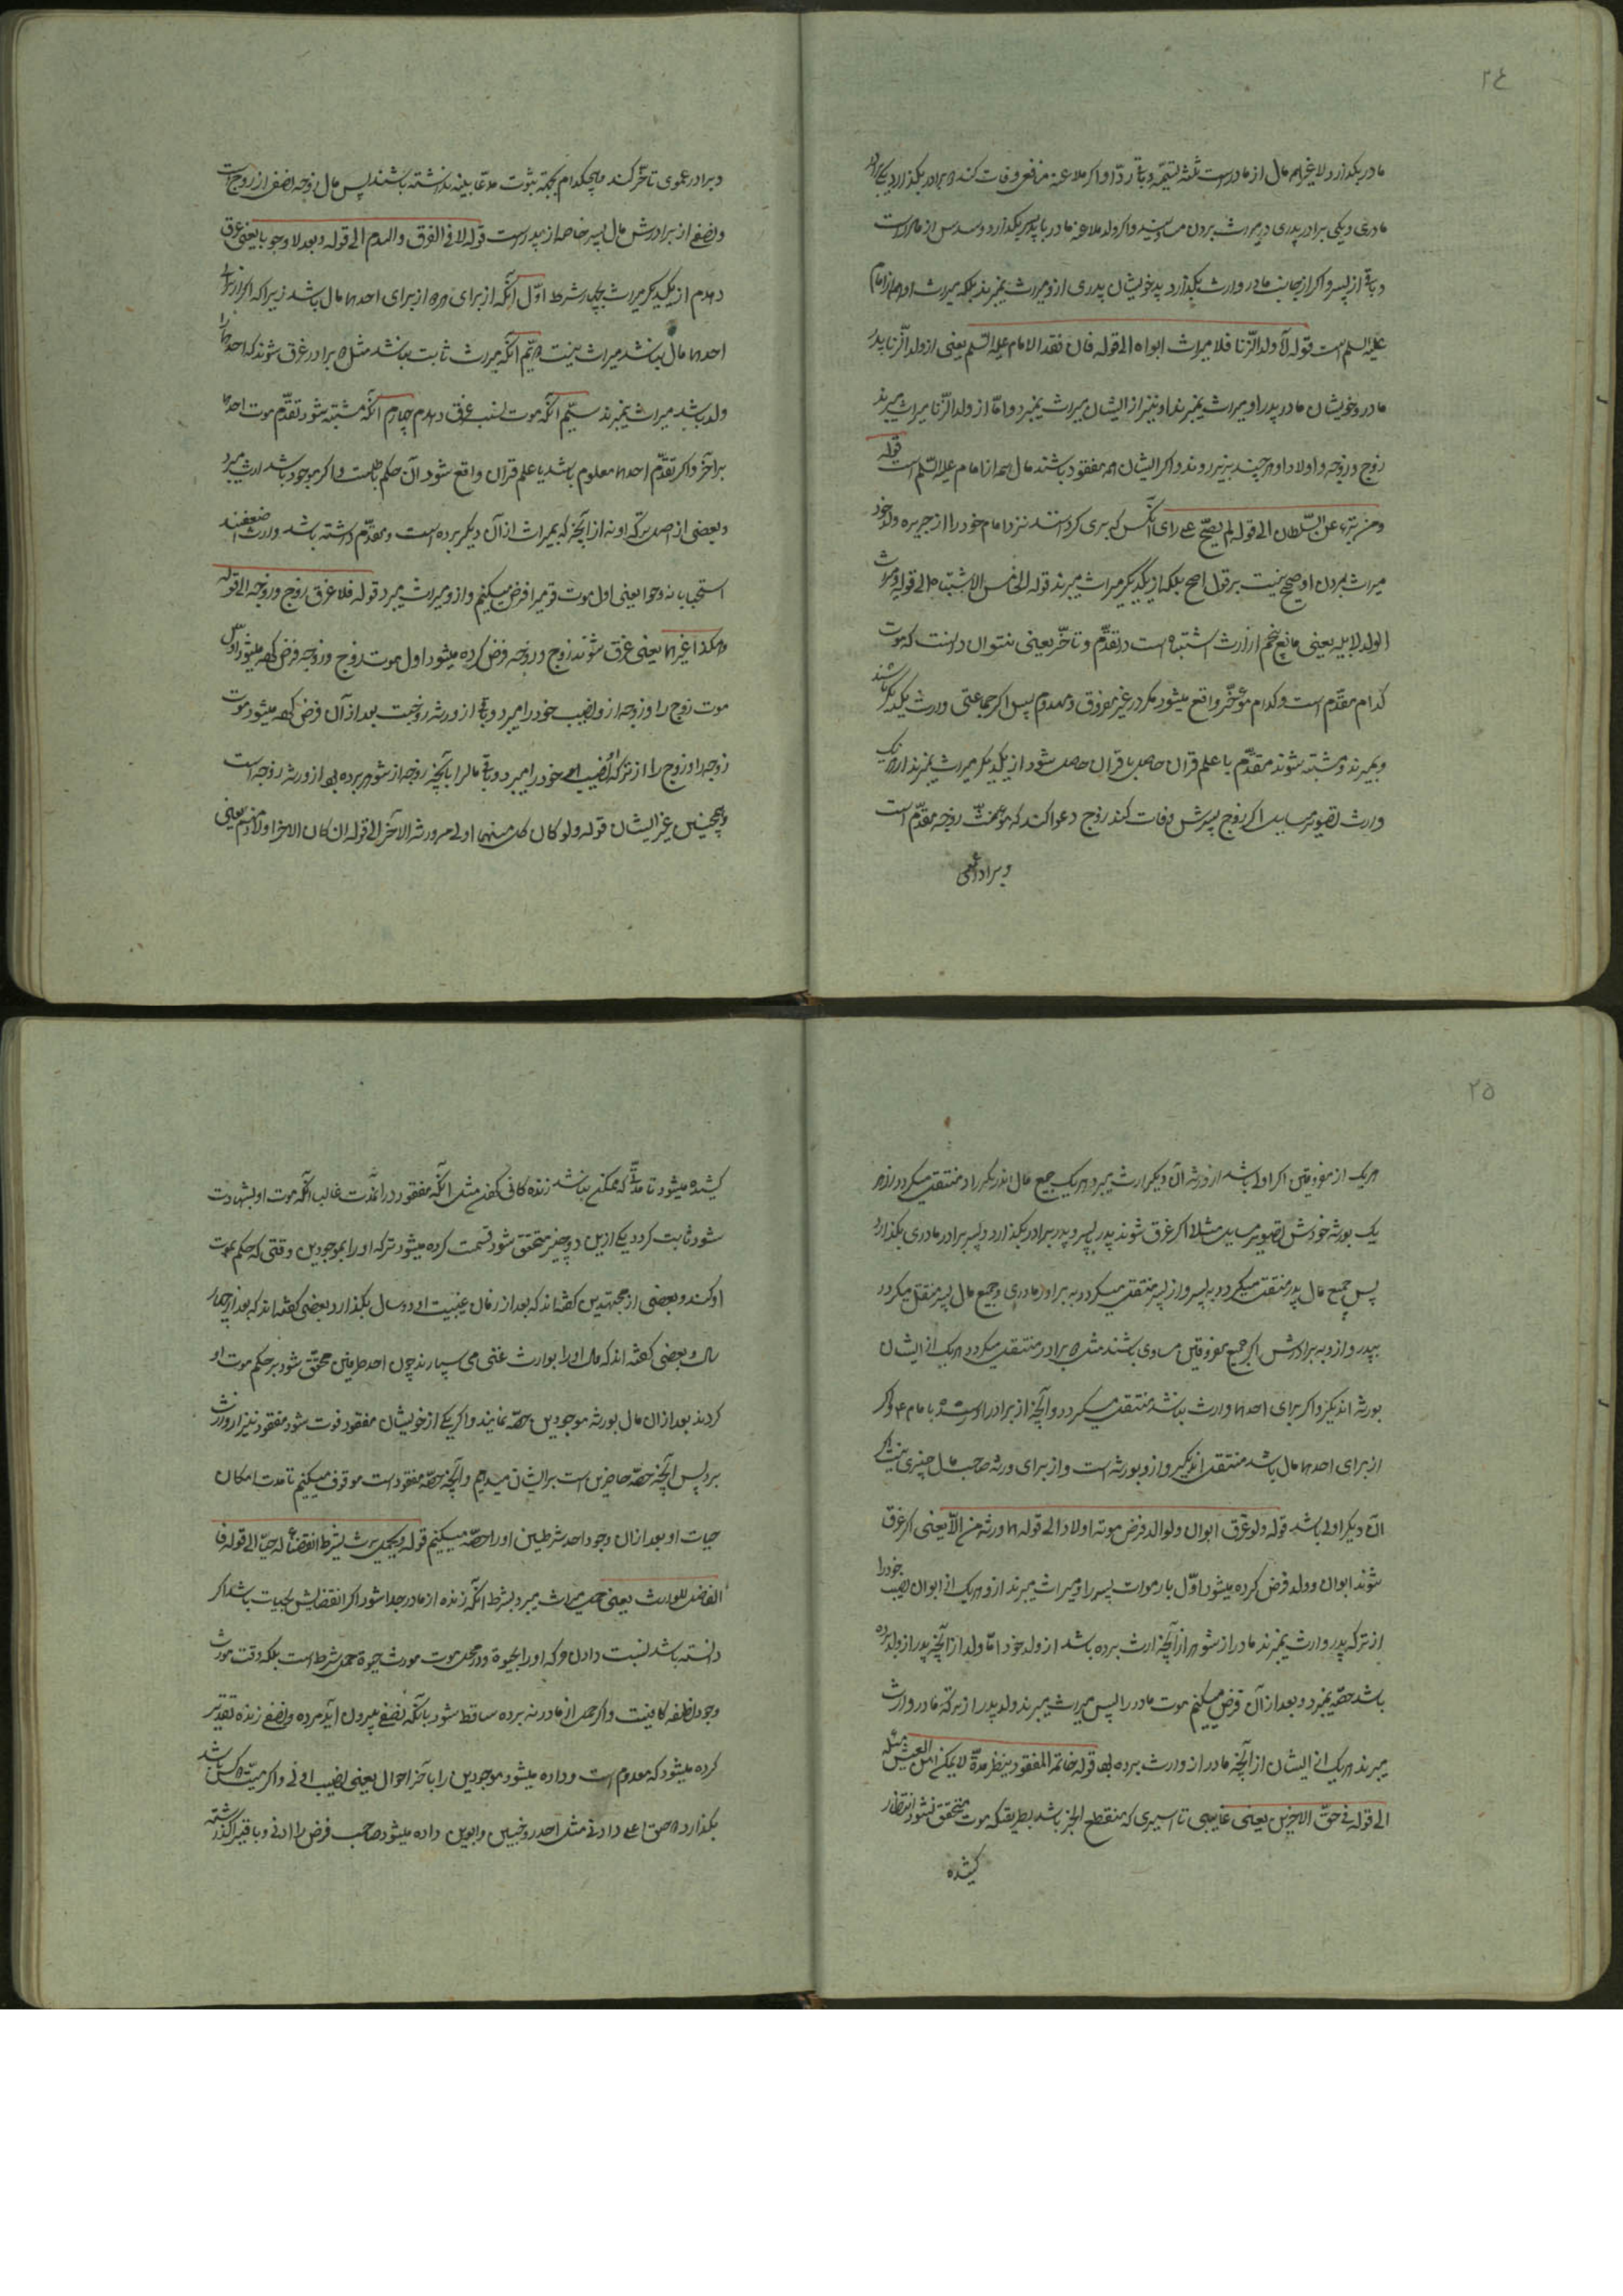 ٢٤
مادر بگذارد لا غیر همه مال از مادرست ثلث تسمیه و باقی ردّا و اگر ملاعنه منافعی وفات کند و برادر بگذارد یکی
مادری و یکی برادر پدری در میراث بردن مساویند و اگر ولد ملاعنه مادر با پسر بگذارد و سدس از مادرست
و باقی از پسر و اگر از جانب مادر وارث نگذارد پدر خویشان پدری ازو میراث نمیبرند بلکه میراث او از امام
علیه السلم است قوله لا ولد الزّنا فلا میراث ابواه الی قوله فان فقد الامام علیه السّلم یعنی از ولد الزّنا پدر
مادر و خویشان مادر پدر او میراث نمیبرند او نیز از ایشان میراث نمیبرد و امّا از ولد الزّنا میراث میبرند
زوج و زوجه و اولاد او هر چند بزیر روند و اگر ایشان همه مفقود باشند مال همه از امام علیه السّلم است قوله
و من تبرّء عن السّلطان الی قوله لم یصحّ علی رای آنکس که بری کردستند نزد امام خود را از جریره ولد خود
میراث بردن او صحیح نیست بر قول اصح بلکه از یکدیگر میراث میبرند قوله الخامس الاشتباه الی قوله و میراث
الولد لابیه یعنی مانع پنجم از ارث اشتباه است در تقدّم و تاخّر یعنی نتوان دانست که موت
کدام مقدّم است و کدام مؤخّر واقع میشود مگر در غیر مفروق و مهدوم پس اگر جماعتی وارث یکدیگر باشند
و بمیرند و مشتبه شوند متقدّم یا علم قران حاصل یا قران حاصل شود از یکدیگر میراث نمیبرند از یک
وارث تصویر مسایل اگر زوج پسرش وفات کند زوج دعوا کند که موت زوجه مقدّم است
و برادر عمی
و برادر عموی تاخّر کند و هیچکدام بجهة ثبوت مدعا بینه نداشته باشند پس مال زوجه نصفی از زوج است
و نصفی از برادرش مال پسر خاصه از پدرست قوله لا فی الغرق و الهدم الی قوله و بعد لا وجوبا یعنی غرق
و هدم از یکدیگر میراث بچهار شرط اوّل آنکه از برای هر دو از برای احدهما مال باشد زیرا که اگر از برای
احدهما مال نباشد میراث نیست دویّم آنکه میراث ثابت باشد مثل دو برادر غرق شوند که احدهما را
ولد باشد میراث نمیبرند سیّم آنکه موت بسبب غرق و هدم چهارم آنکه مشتبه شود تقدّم موت احدهما
بر آخر و اگر تقدّم احدهما معلوم باشد یا علم قران واقع شود آن حکم باطلست و اگر موجود باشد ارث میبرد
و بعضی از اصل ترکه او نه از آنچه که بمیراث از آن دیگر برده است و مقدّم داشته باشد وارث اضعفند
استحبابا نه وجوبا یعنی اول موت قویرا فرض میکنیم و ازو میراث میبرد قوله فلا غرق زوج و زوجه الی قوله
و هکذا غیرهما یعنی غرق شوند زوج و زوجه فرض کرده میشود اول موت زوج و زوجه فرض کرده میشود اوّل
موت زوج را و زوجه ازو نصیب خود را میبرد و باقی از ورثه زوجست بعد از آن فرض کرده میشود موت
زوجه را و زوج را از ترکه او نصیب خود را میبرد و باقی مال را با آنچه زوجه از شوهر برده بود از ورثه زوجه است
و همچنین غیر ایشان قوله و لو کان کل منهما اولی من ورثه الآخر الی قوله ان کان الاخر اولادهم یعنی
٢٥
هریک از مغروقین اگر اولی باشد از ورثه آن دیگر ارث میبرد و هریک جمیع مال آن دیگر را و منتقل میگردد از هر
یک بورثه خودش تصویر مسایل مثلا اگر غرق شوند پدر پسر و پدر برادر بگذارد و پسر برادر مادری بگذارد
پس جمیع مال پدر منتقل میگردد به پسر و از پسر منتقل میگردد به برادر مادری و جمیع مال پسر منتقل میگردد
بپدر و ازو به برادرش اگر جمیع مغروقین مساوی باشند مثل دو برادر منتقل میگردد هریک از ایشان
بورثه اندیگر و اگر برای احدهما وارث نباشد منتقل میگردد و آنچه از برادر اوست بامام ع و اگر
از برای احدهما مال باشد منتقل اندیگر و ازو بورثه است و از برای ورثه صاحب مال چیزی نیست اگر
آن دیگر اولی باشد قوله و لو غرق ابوان و لو الد فرض موته اولا و الی قوله ها ورثه من الآ یعنی اگر غرق
شوند ابوان و ولد فرض کرده میشود اوّل بار موت پسر را و میراث میبرند ازو هریک از ابوان نصیب خود را
از ترکه پدر و ارث نمیبرند مادر از شوهر از آنچه ارث برده باشد از ولد خود امّا ولد از آنچه پدر از ولد برده
باشد حصّه نمیبرد و بعد از آن فرض میکنیم موت مادر را پس میراث میبرند ولد پدر از ترکه مادر و ارث
میبرند هریک از ایشان از آنچه مادر از وارث برده بود قوله خاتم المفقود ینظر مدّة لا یمکن ان العیش مثله
الی قوله فی حقّ الاخرین یعنی غایبی تا اسیری که منقطع الخبر باشد بطریقیکه موت متحقق نشود انتظار
کشیده
کشیده میشود تا مدّتی که ممکن نباشد زنده کافی کفن مثل آنکه مفقود در انمدّت غالبا آنکه موت او بشهادت
شود ثابت گردد یکی ازین دو چیز متحقق شود قسمت کرده میشود ترکه او را بموجودین وقتی که حکم بموت
او کند و بعضی از مجتهدین گفته‌اند که بعد از زمان غیبت او ده سال بگذارد و بعضی گفته‌اند که بعد از چهار
سال و بعضی گفته‌اند که مال او را بوارث غنی می سپارند چون احد طرفین محقّق شود بر حکم موت او
کردند بعد از ان مال بورثه موجودین حصّه نمایند و اگر یکی از خویشان مفقود فوت شود مفقود نیز ازو ارث
برد پس آنچه حصّه حاضرین است برایشان میدهیم و آنچه حصّه مفقود است موقوف میکنیم تا مدت امکان
حیات او بعد از ان وجود احد شرطین او را حصّه میکنیم قوله و یحمل یرث بشرط انفصاله حیّا الی قوله فا
الفضل للوارث یعنی حمل میراث میبرد بشرط آنکه زنده از مادر جدا شود اگر انفصالش بحیات باشد اگر
دانسته باشد نسبت دادن حرکه او را بحیوة و در محل موت مورث حیوة حمل شرط است بلکه وقت موت
وجود نطفه کافیست و اگر حمل از مادر نبرده ساقط شود با آنکه نصفی بیرون آید مرده و نصفی زنده تقدیر
کرده میشود که معدوم است و داده میشود موجودین را با آخر احوال یعنی نصیب ادنی و اگر میّت
بگذارد صاحب اعلی و ادنی مثل احد زوجین و ابوین داده میشود صاحب فرض را ادنی و باقی را گذاشته